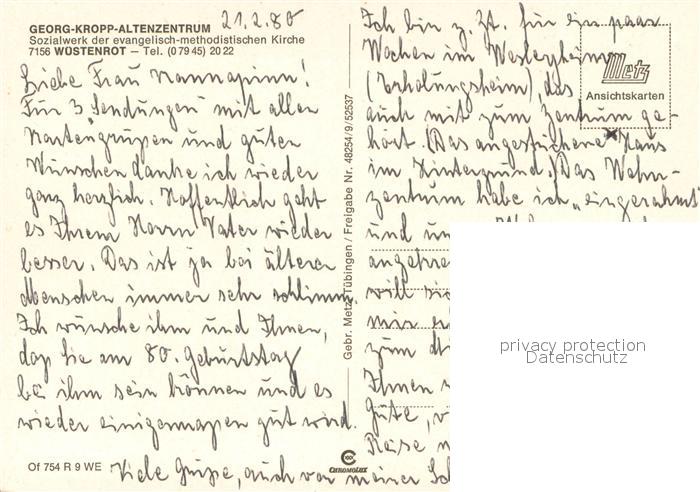 21.2.80
GEORG-KROPP-ALTENZENTRUM
Sozialwerk der evangelisch-methodistischen Kirche
7156 WÜSTENROT — Tel. (0 79 45) 20 22
Liebe Frau Nannapinn!
Für 3 „Sendungen“ mit allen
Kartengrüßen und guten
Wünschen danke ich wieder
ganz herzlich. Hoffentlich geht
es Ihrem Herrn Vater wieder
besser. Das ist ja bei älteren
Menschen immer sehr schlimm.
Ich wünsche ihm und Ihnen,
daß Sie am 80. Geburtstag
bei ihm sein können und es
wieder einigermaßen gut wird.
Of 754 R 9 WE
Viele Grüße, auch von meiner Sch
Gebr. Metz Tübingen / Freigabe Nr. 48254/9/52537
CHROMOLUX
Ich bin z. Zt. für ein paar
Wochen im Wesleyheim
(Erholungsheim) das
auch mit zum Zentrum ge-
hört. (Das angestrichene Haus
im Hintergrund.) Das Wohn-
zentrum habe ich „eingerahmt“
und
angekre
will sie
mir
zum
Ihnen
Güte, v
Reise
Metz
Ansichtskarten
privacy protection
Datenschutz